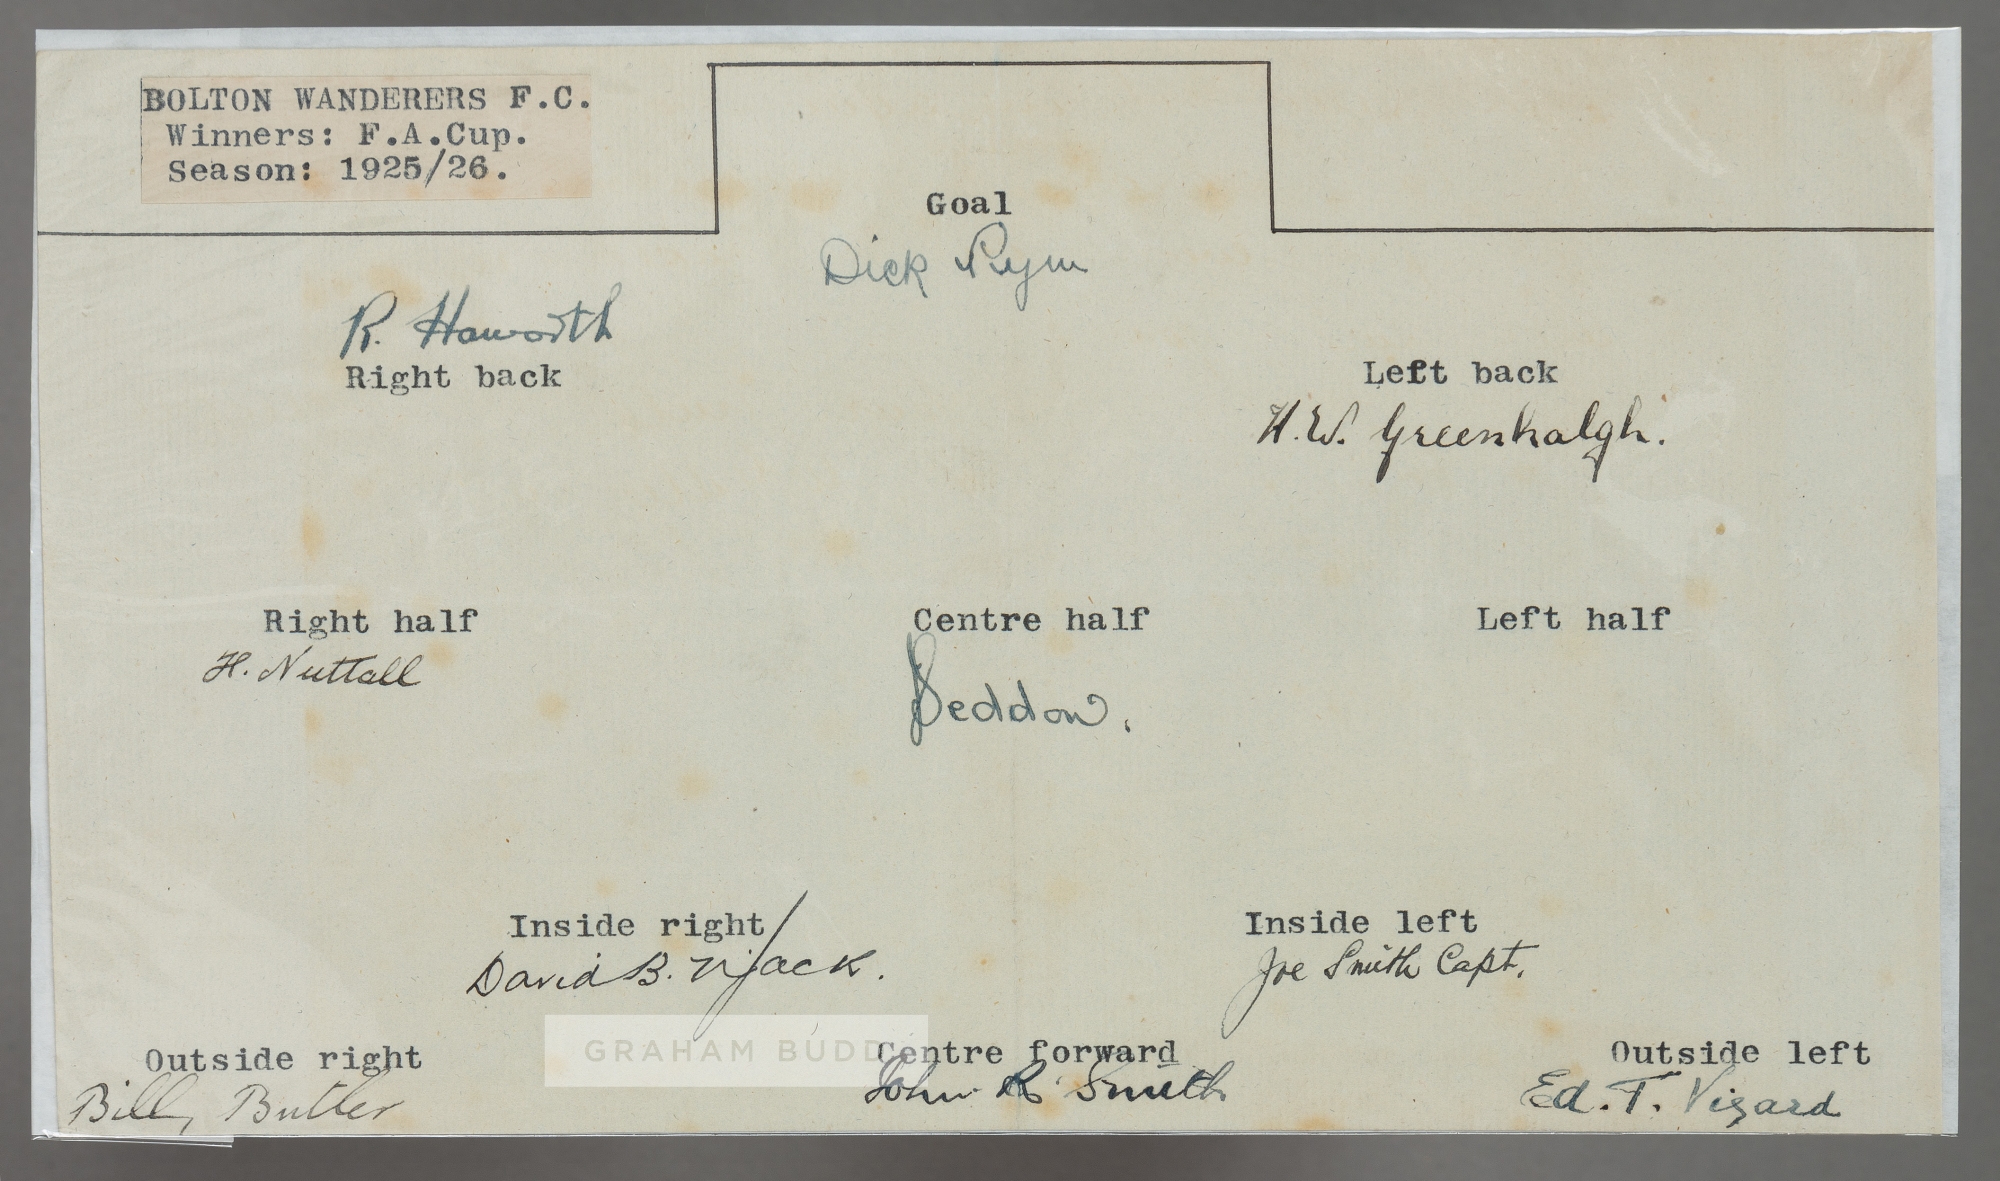 BOLTON WANDERERS F.C.
Winners: F.A.Cup.
Season: 1925/26.
Goal
Dick Pym
R. Haworth
Right back
Left back
H.W. Greenhalgh.
Right half
H. Nuttall
Centre half
Seddon.
Left half
Inside right
David B. N. Jack.
Inside left
Joe Smith Capt.
GRAHAM BUDD
Outside right
Billy Butler
Centre forward
John R Smith
Outside left
Ed. T. Vizard